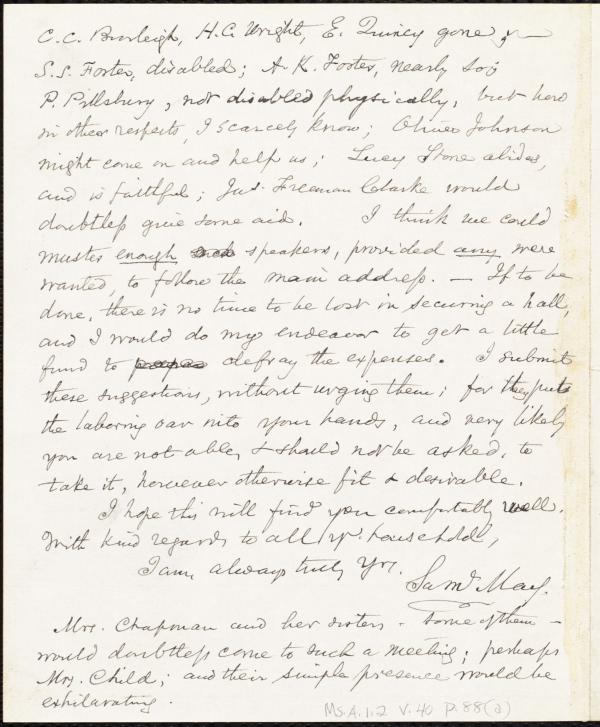 C. C. Burleigh, H. C. Wright, E. Quincy gone; —
S. S. Foster, disabled; A. K. Foster, nearly so;
P. Pillsbury, not disabled physically, but how
in other respects, I scarcely know; Oliver Johnson
might come on and help us; Lucy Stone abides,
and is faithful; Jas. Freeman Clarke would
doubtless give some aid. I think we could
muster enough such speakers, provided any were
wanted, to follow the main address. — If to be
done, there is no time to be lost in securing a hall,
and I would do my endeavor to get a little
fund to defray the expenses. I submit
these suggestions, without urging them; for they put
the laboring oar into your hands, and very likely
you are not able, & should not be asked, to
take it, however otherwise fit & desirable.
I hope this will find you comfortably well.
With kind regards to all yr. household,
I am, always truly Yrs.
Saml. May.
Mrs. Chapman and her sisters - some of them -
would doubtless come to such a meeting; perhaps
Mrs. Child; and their simple presence would be
exhilarating.
Ms. A. 1. 2 V. 40 p. 88(a)